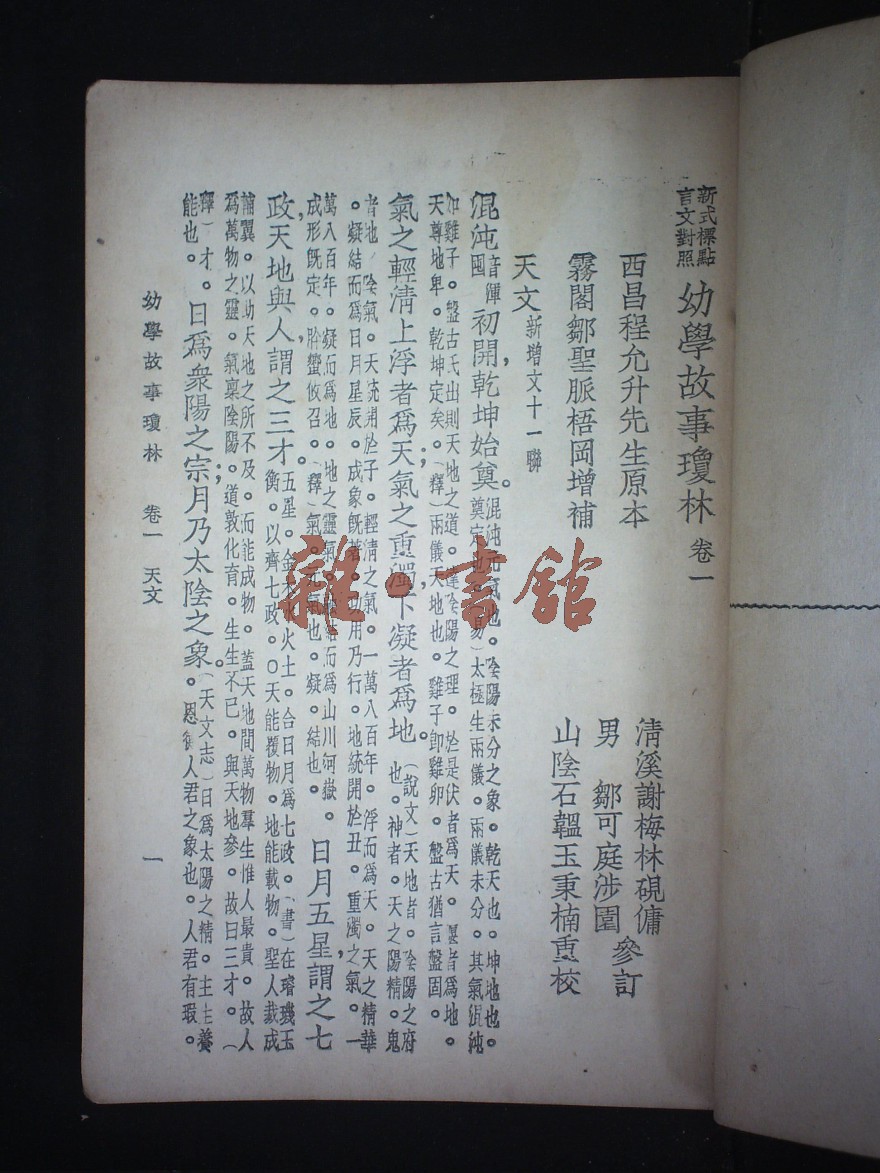 新式標點
言文對照
幼學故事瓊林 卷一
西昌程允升先生原本
清溪謝梅林硯傭
霧閣鄒聖脈梧岡增補
男 鄒可庭涉園 參訂
山陰石韞玉秉楠重校
天文 新增文十一聯
混沌 音渾囤 初開,乾坤始奠。
混沌元氣也。陰陽未分之象。乾天也。坤地也。
奠定也。(易)太極生兩儀。兩儀未分。其氣混沌
如雞子。盤古氏出則天地之道。達陰陽之理。於是伏者為天。偃者為地。
天尊地卑。乾坤定矣。(釋)兩儀天地也。雞子卽雞卵。盤古猶言盤固。
氣之輕清上浮者爲天;氣之重濁下凝者爲地。
(說文)天地者。陰陽之府
也。神者。天之陽精。鬼
者地之陰氣。天統開於子。輕清之氣。一萬八百年。浮而爲天。天之精華
。凝結而爲日月星辰。成象旣著。功用乃行。地統開於丑。重濁之氣。一
萬八百年。凝而爲地。地之靈氣。融結而爲山川河嶽。
成形旣定。肸蠁攸召。(釋)氣。元氣也。凝。結也。
日月五星,謂之七
政,天地與人,謂之三才。
五星。金木水火土。合日月爲七政。(書)在璿璣玉
衡。以齊七政。○天能覆物。地能載物。聖人裁成
輔翼。以助天地之所不及。而能成物。蓋天地間萬物羣生惟人最貴。故人
爲萬物之靈。氣稟陰陽。道敦化育。生生不已。與天地參。故曰三才。(
釋)才。
能也。
日爲衆陽之宗;月乃太陰之象。
(天文志)日爲太陽之精。主生養
恩德。人君之象也。人君有瑕。
幼學故事瓊林 卷一 天文 一
雜·書舘